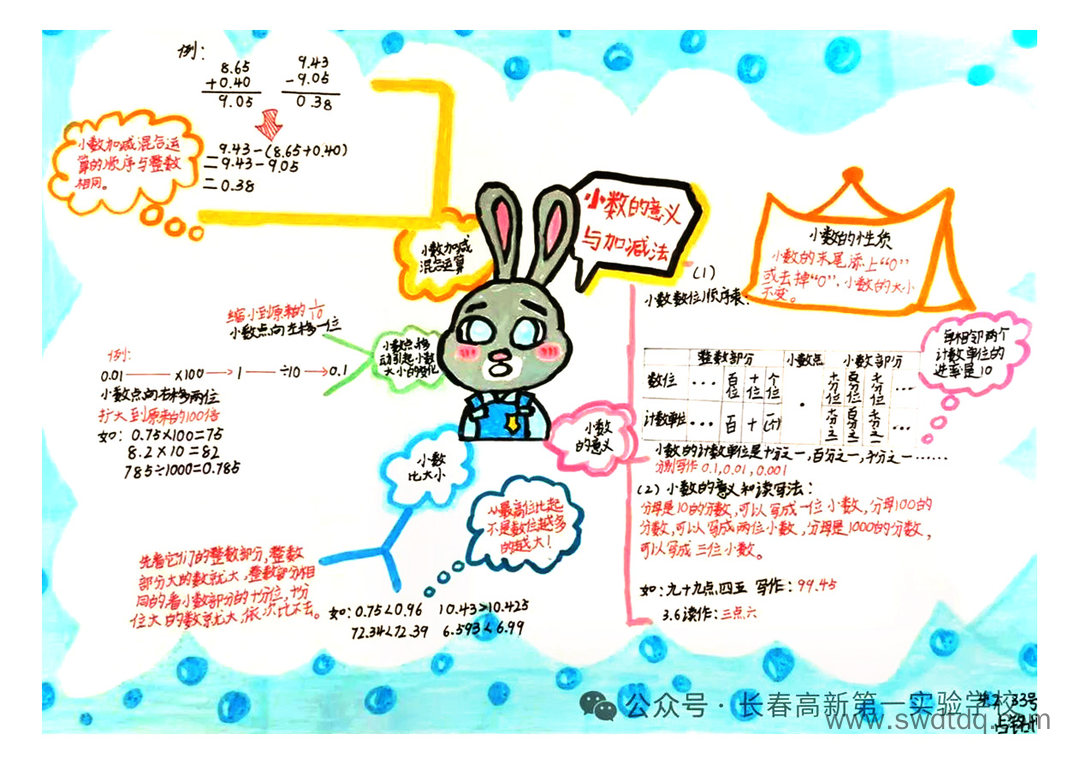 小数的意义
与加减法
例：
8.65
+0.40
9.05
9.43
-9.05
0.38
9.43-(8.65+0.40)
=9.43-9.05
=0.38
小数加减混合运
算的顺序与整数
相同。
小数加减
混合运算
缩小到原来的1/10
小数点向左移一位
小数点移
动引起小数
大小的变化
例：
0.01 ×100 → 1 → ÷10 → 0.1
小数点向右移两位
扩大到原来的100倍
如：0.75×100=75
8.2×10=82
785÷1000=0.785
小数
比大小
从最高位比起
不是数位越多
的越大！
先看它们的整数部分，整数
部分大的数就大，整数部分相
同的看小数部分的十分位，十分
位大的数就大，依次比下去。
如：0.75<0.96 10.43>10.425
72.34<72.39 6.593<6.99
小数
的意义
小数的性质
小数的末尾添上“0”
或去掉“0”，小数的大小
不变。
(1)
小数数位顺序表：
整数部分 小数点 小数部分
数位 … 百位 十位 个位 · 十分位 百分位 千分位 …
计数单位 … 百 十 一(个) 十分之一 百分之一 千分之一 …
每相邻两个
计数单位的
进率是10
小数的计数单位是十分之一，百分之一，千分之一……
分别写作0.1，0.01，0.001
(2)小数的意义和读写法：
分母是10的分数，可以写成一位小数，分母100的
分数，可以写成两位小数，分母是1000的分数，
可以写成三位小数。
如：九十九点四五 写作：99.45
3.6读作：三点六
公众号·长春高新第一实验学校
33号
www.swdtdq.com